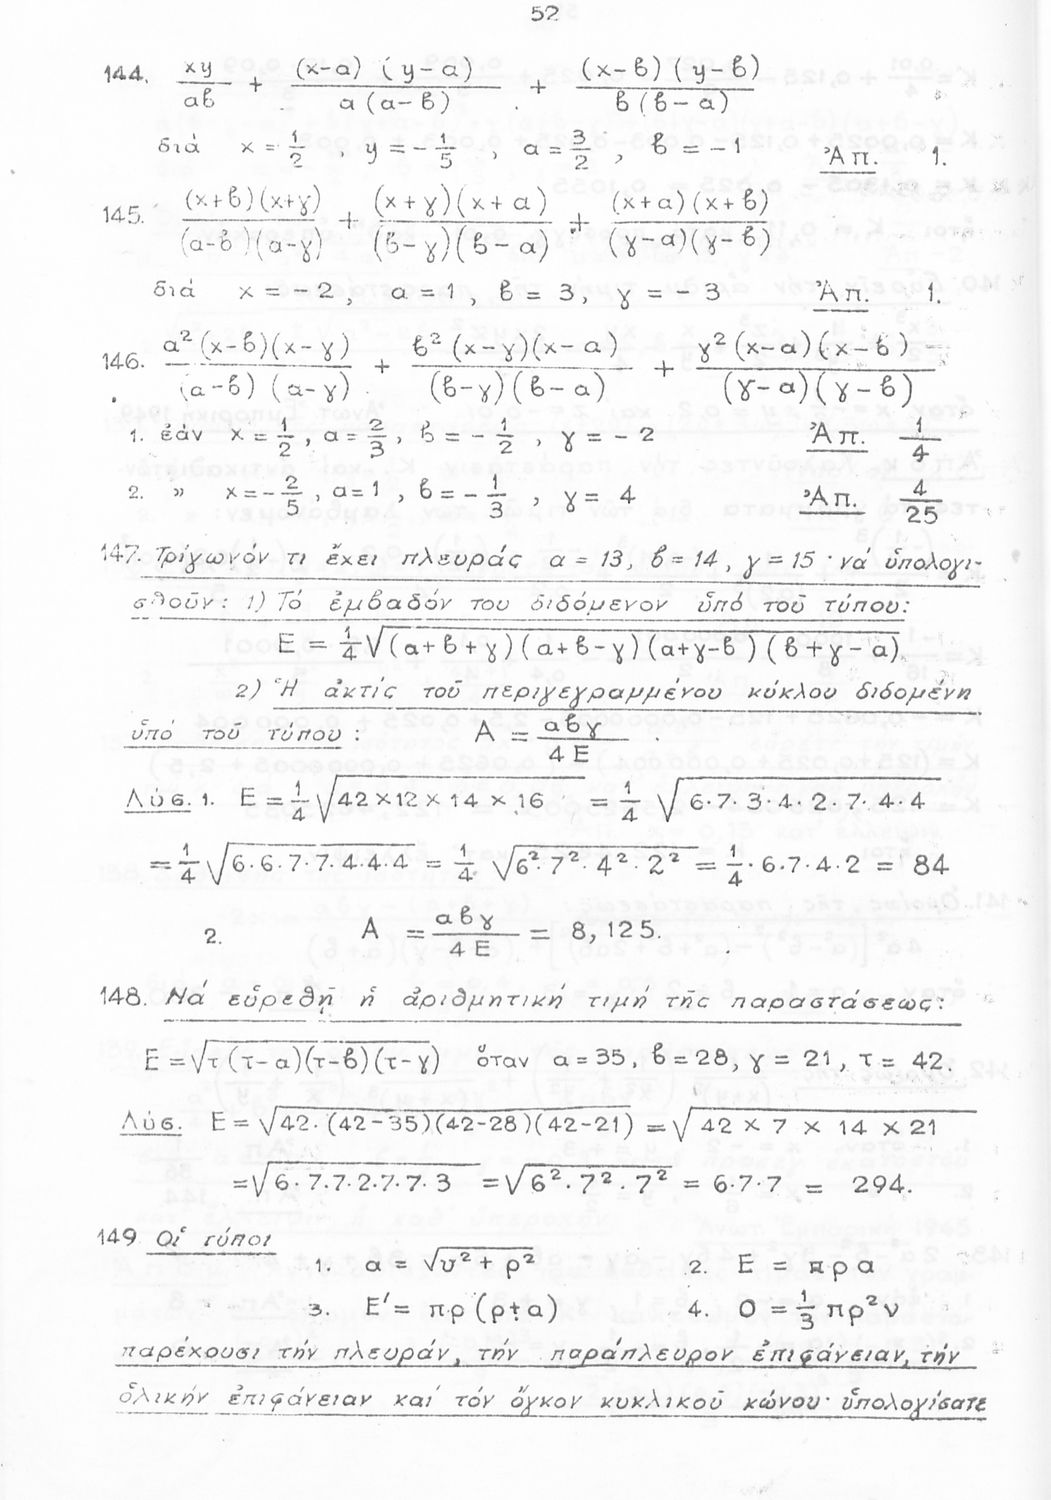 52
144. xy/αβ + (x-α)(y-α)/α(α-β) + (x-β)(y-β)/β(β-α)
διά x = 1/2 , y = -1/5 , α = 3/2 , β = -1 Ἀπ. 1.
145. (x+β)(x+γ)/(α-β)(α-γ) + (x+γ)(x+α)/(β-γ)(β-α) + (x+α)(x+β)/(γ-α)(γ-β)
διά x = -2, α = 1, β = 3, γ = -3 Ἀπ. 1.
146. α²(x-β)(x-γ)/(α-β)(α-γ) + β²(x-γ)(x-α)/(β-γ)(β-α) + γ²(x-α)(x-β)/(γ-α)(γ-β)
1. ἐάν x = 1/2, α = 2/3, β = -1/2, γ = -2 Ἀπ. 1/4
2. » x = -2/5, α = 1, β = -1/3, γ = 4 Ἀπ. 4/25
147. Τρίγωνόν τι ἔχει πλευράς α = 13, β = 14, γ = 15 · νά ὑπολογι-
σθοῦν: 1) Τό ἐμβαδόν του διδόμενον ὑπό τοῦ τύπου:
E = 1/4 √(α+β+γ)(α+β-γ)(α+γ-β)(β+γ-α).
2) Ἡ ἀκτίς τοῦ περιγεγραμμένου κύκλου διδομένη
ὑπό τοῦ τύπου: A = αβγ/4E
Λύσ. 1. E = 1/4 √42×12×14×16 = 1/4 √6·7·3·4·2·7·4·4
= 1/4 √6·6·7·7·4·4·4 = 1/4 √6²·7²·4²·2² = 1/4·6·7·4·2 = 84
2. A = αβγ/4E = 8,125.
148. Νά εὑρεθῇ ἡ ἀριθμητική τιμή τῆς παραστάσεως:
E = √τ(τ-α)(τ-β)(τ-γ) ὅταν α = 35, β = 28, γ = 21, τ = 42.
Λύσ. E = √42·(42-35)(42-28)(42-21) = √42×7×14×21
= √6·7·7·2·7·7·3 = √6²·7²·7² = 6·7·7 = 294.
149 Οἱ τύποι
1. α = √υ²+ρ² 2. E = πρα
3. E' = πρ(ρ+α) 4. O = 1/3 πρ²ν
παρέχουσι τήν πλευράν, τήν παράπλευρον ἐπιφάνειαν, τήν
ὁλικήν ἐπιφάνειαν καί τόν ὄγκον κυκλικοῦ κώνου· ὑπολογίσατε